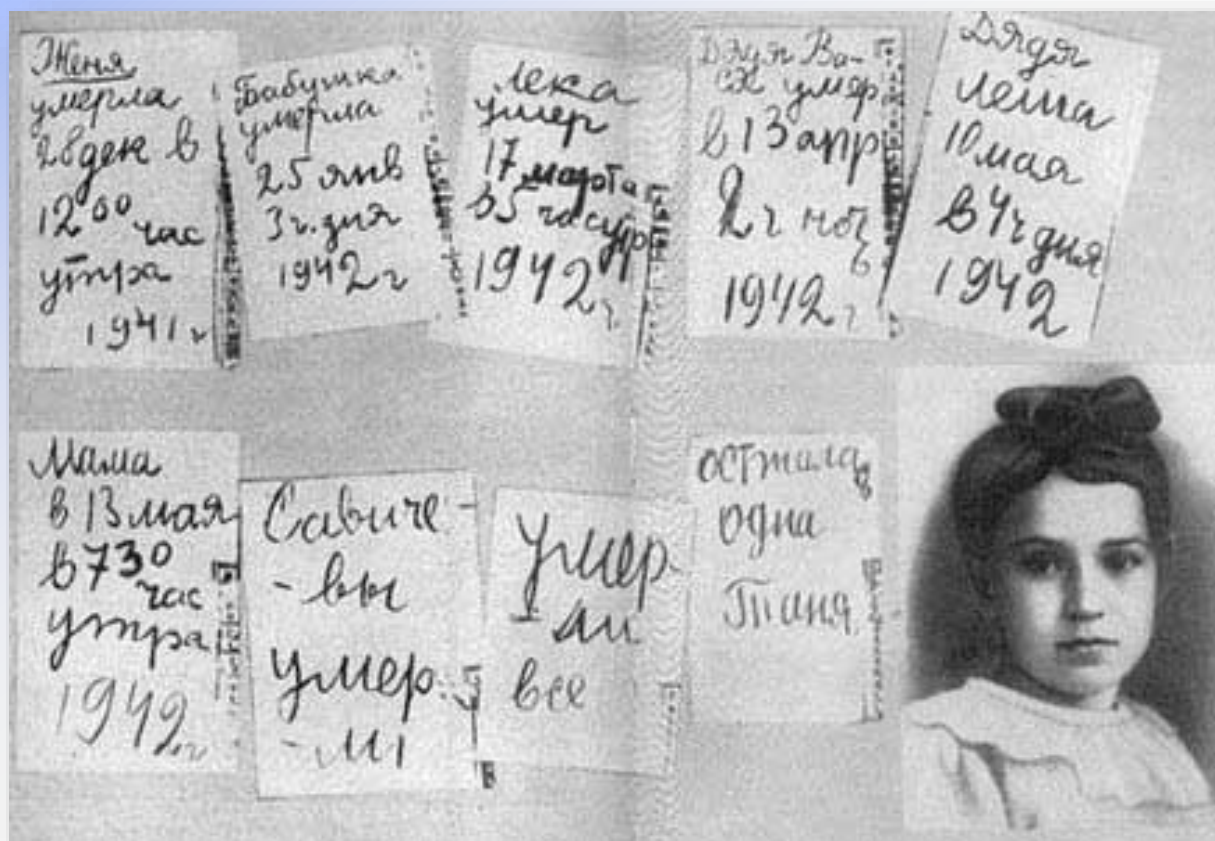 Женя
умерла
28 дек в
12 00 час
утра
1941 г
Бабушка
умерла
25 янв
3 ч. дня
1942 г
Лека
умер
17 марта
в 5 час утр
1942 г.
Дядя Ва-
ся умер
в 13 апр
2 ч ночь
1942 г
Дядя
Леша
10 мая
в 4 ч дня
1942
Мама
в 13 мая
в 7 30
час
утра
1942 г
Савиче-
-вы
умер-
-ли
умер-
-ли
все
осталась
одна
Таня